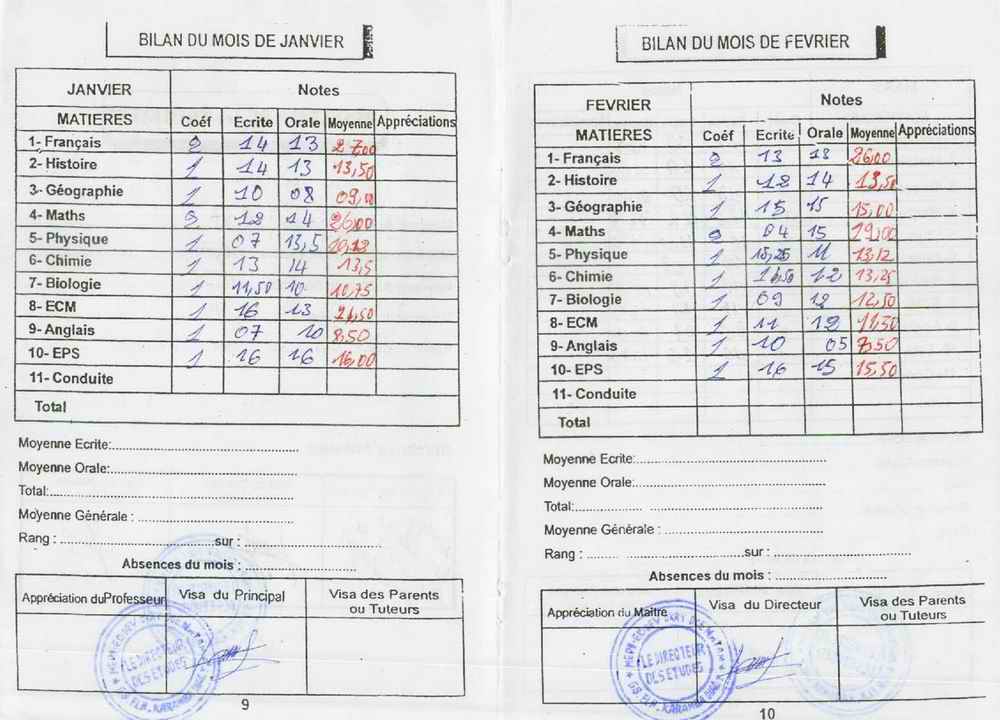 BILAN DU MOIS DE JANVIER
JANVIER Notes
MATIERES Coéf Ecrite Orale Moyenne Appréciations
1- Français 2 14 13 27,00
2- Histoire 1 14 13 13,50
3- Géographie 1 10 08 09,00
4- Maths 2 12 14 26,00
5- Physique 1 07 13,5
6- Chimie 1 13 14 13,5
7- Biologie 1 11,50 10 10,75
8- ECM 1 16 13
9- Anglais 1 07 10 8,50
10- EPS 1 16 16 16,00
11- Conduite
Total
Moyenne Ecrite:
Moyenne Orale:
Total:
Moyenne Générale :
Rang : sur :
Absences du mois :
Appréciation du Professeur Visa du Principal Visa des Parents ou Tuteurs
LE DIRECTEUR
DES ETUDES
9
BILAN DU MOIS DE FEVRIER
FEVRIER Notes
MATIERES Coéf Ecrite Orale Moyenne Appréciations
1- Français 2 13 13 26,00
2- Histoire 1 12 14 13,50
3- Géographie 1 15 15 15,00
4- Maths 2 04 15 19,00
5- Physique 1 15,25 11 13,12
6- Chimie 1 12 13,25
7- Biologie 1 09 12,50
8- ECM 1 11 12 11,50
9- Anglais 1 10 05 7,50
10- EPS 1 16 15 15,50
11- Conduite
Total
Moyenne Ecrite:
Moyenne Orale:
Total:
Moyenne Générale :
Rang : sur :
Absences du mois :
Appréciation du Maître Visa du Directeur Visa des Parents ou Tuteurs
LE DIRECTEUR
DES ETUDES
10